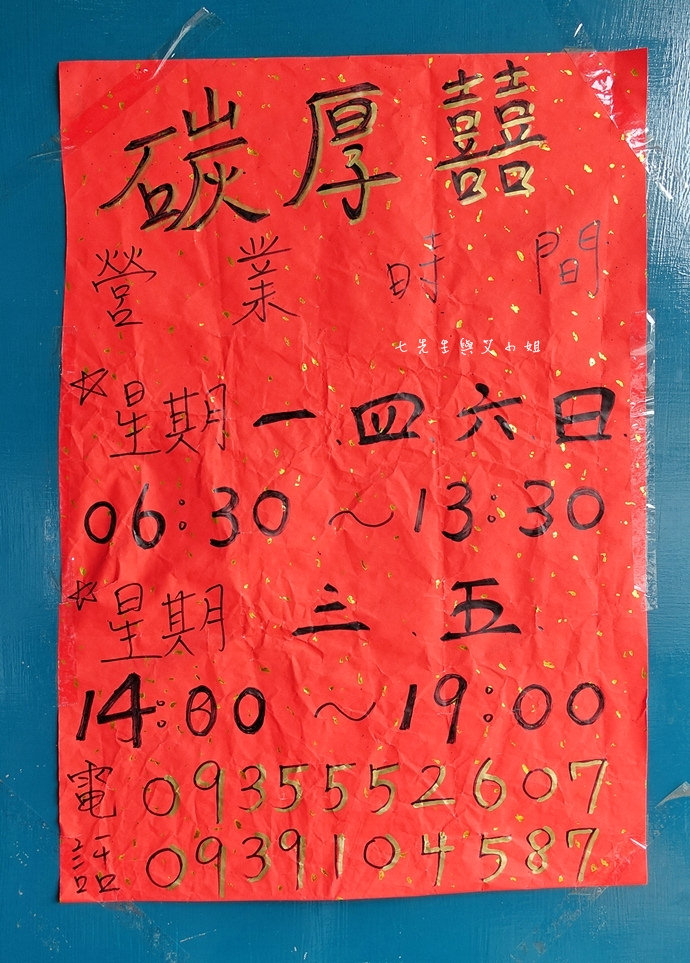 碳厚囍
營業時間
七先生與艾小姐
☆星期一、四、六、日
06:30～13:30
☆星期三、五
14:00～19:00
電話 0935552607
0939104587